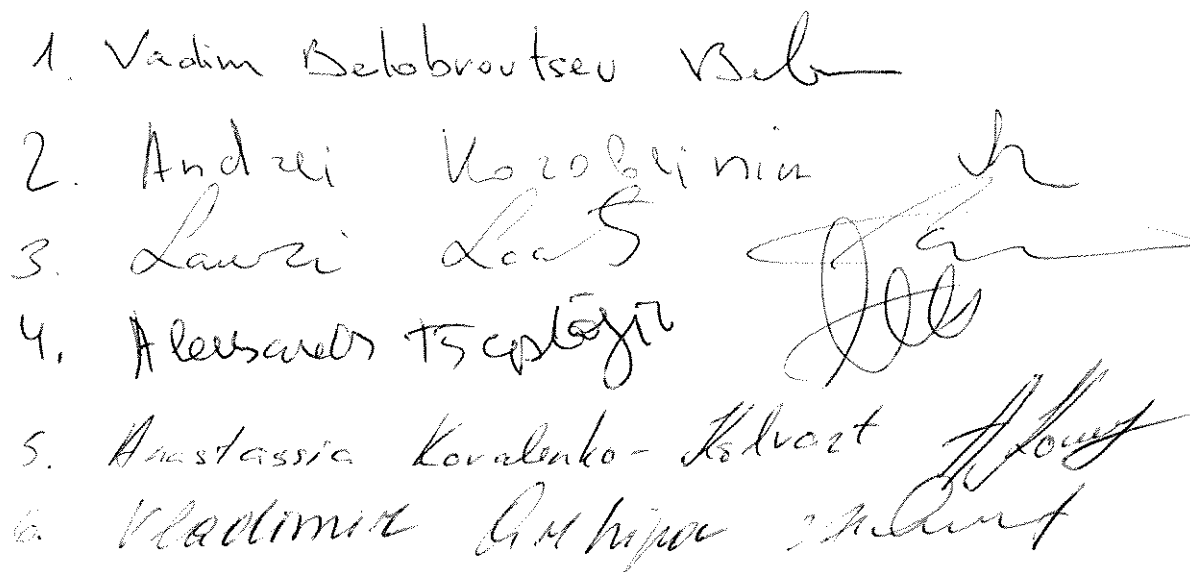 1. Vadim Belobrovtsev
2. Andrei Korobeinik
3. Lauri Laats
4. Aleksandr Tšaplõgin
5. Anastassia Kovalenko-Kõlvart
6. Vladimir Arhipov